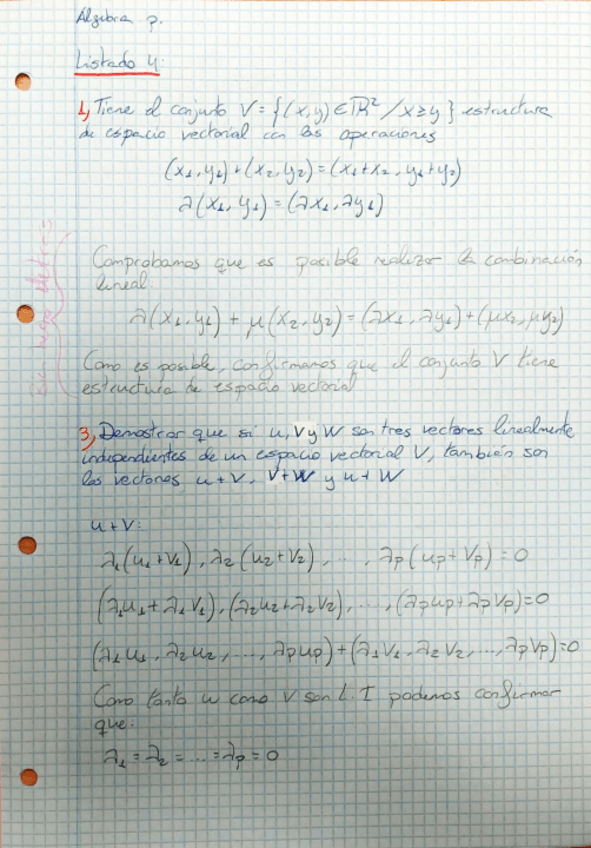 Algebra p.
Listado 4:
1, Tiene el conjunto V = {(x,y) ∈ ℝ² / x ≥ y} estructura
de espacio vectorial con las operaciones
(x₁, y₁) + (x₂, y₂) = (x₁+x₂, y₁+y₂)
λ(x₁, y₁) = (λx₁, λy₁)
Comprobamos que es posible realizar la combinación
lineal.
λ(x₁, y₁) + μ(x₂, y₂) = (λx₁, λy₁) + (μx₂, μy₂)
Como es posible, confirmamos que el conjunto V tiene
estructura de espacio vectorial
3, Demostrar que si u, V y W son tres vectores linealmente
independientes de un espacio vectorial V, también son
los vectores u+V, V+W y u+W
u+V:
λ₁(u₁+V₁), λ₂(u₂+V₂), ..., λp(up+Vp) = 0
(λ₁u₁+λ₁V₁), (λ₂u₂+λ₂V₂), ..., (λpup+λpVp) = 0
(λ₁u₁, λ₂u₂, ..., λpup) + (λ₁V₁, λ₂V₂, ..., λpVp) = 0
Como tanto u como V son L.I podemos confirmar
que:
λ₁ = λ₂ = ... = λp = 0